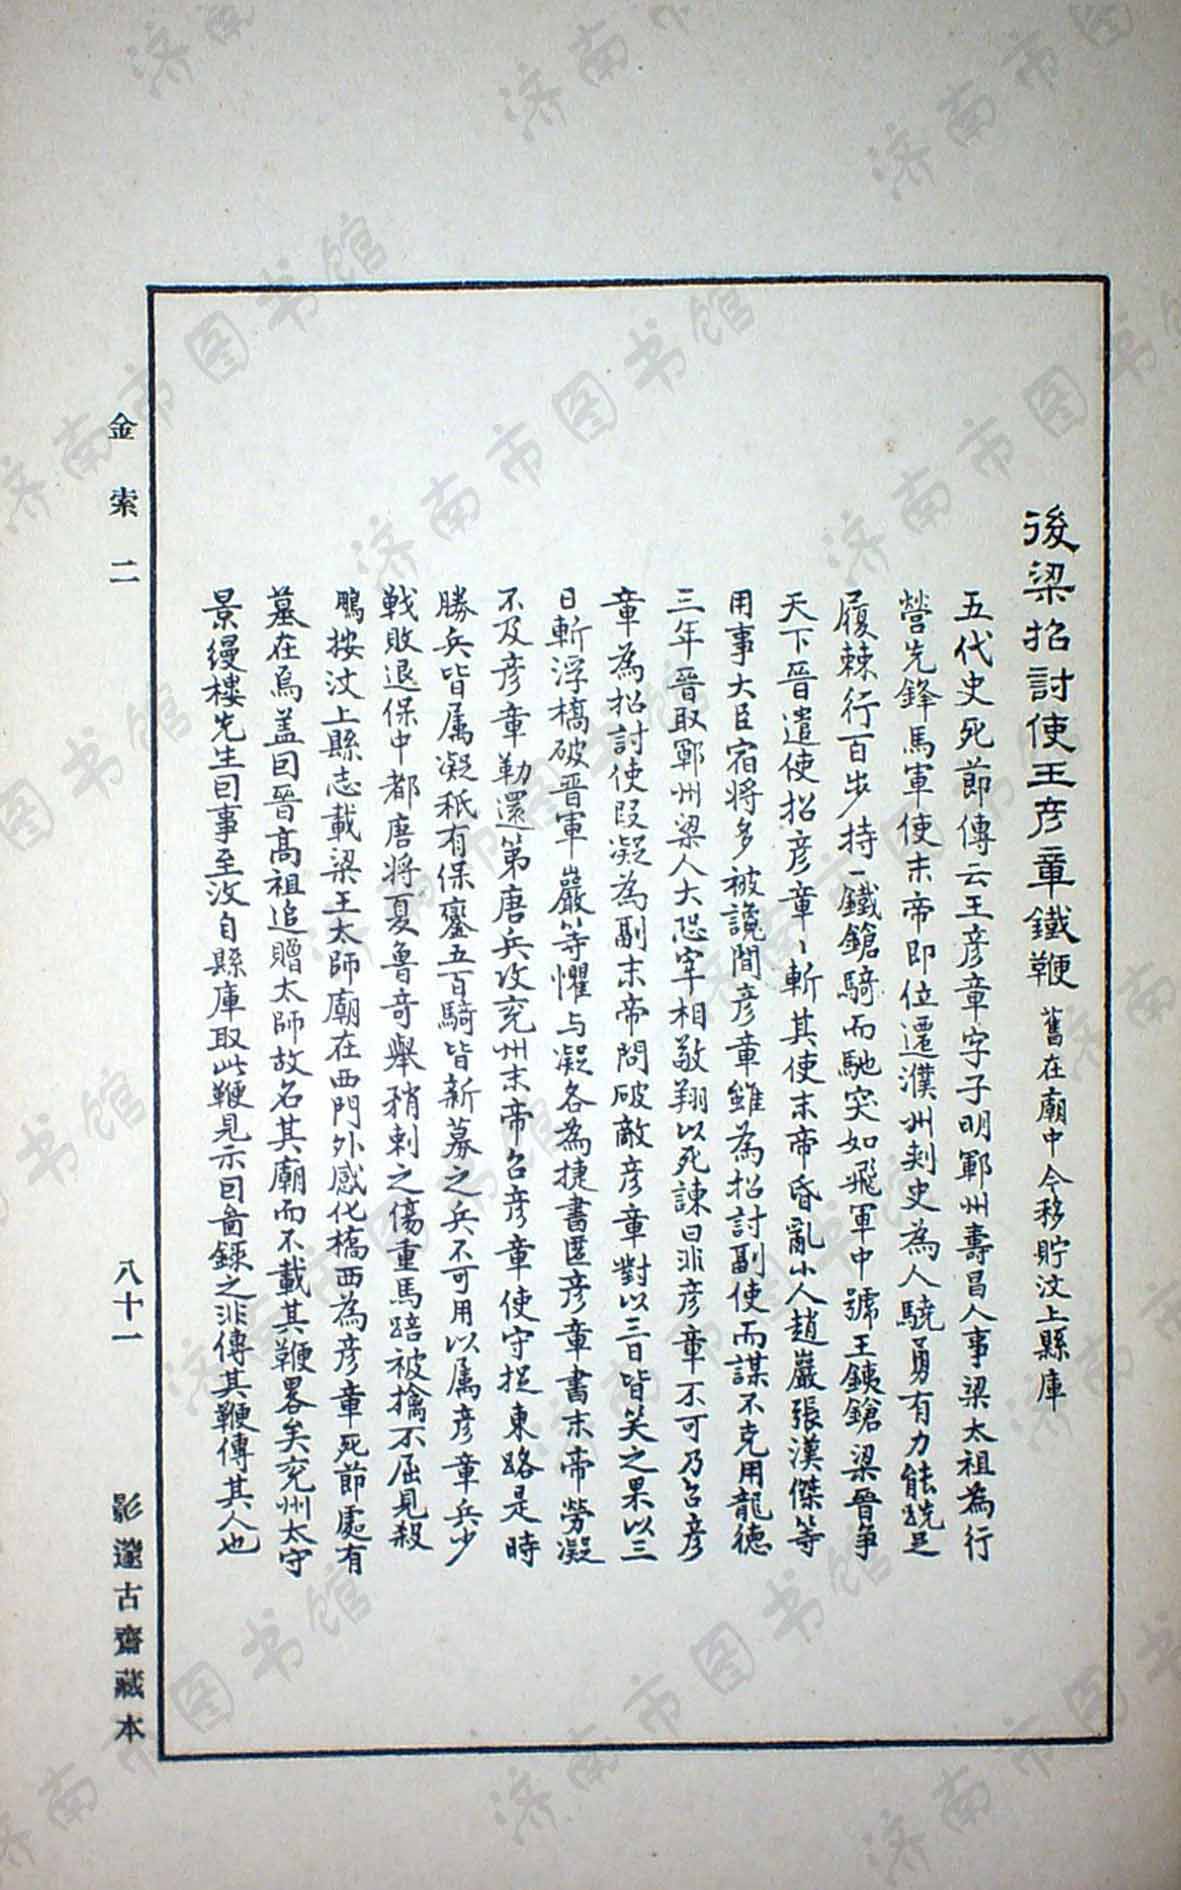 後梁招討使王彦章鐵鞭 舊在廟中今移貯汶上縣庫
五代史死節傳云王彦章字子明鄆州壽昌人事梁太祖為行
營先鋒馬軍使末帝即位遷濮州刺史為人驍勇有力能跣足
履棘行百步持一鐵鎗騎而馳突如飛軍中號王鐵鎗梁晉争
天下晉遣使招彦章〻斬其使末帝昏亂小人趙巖張漢傑等
用事大臣宿將多被讒間彦章雖為招討副使而謀不克用龍德
三年晉取鄆州梁人大恐宰相敬翔以死諫曰非彦章不可乃召彦
章為招討使段凝為副末帝問破敵彦章對以三日皆笑之果以三
日斬浮橋破晉軍巖等懼与凝各為捷書匿彦章書末帝勞凝
不及彦章勒還第唐兵攻兖州末帝召彦章使守捉東路是時
勝兵皆属凝秖有保鑾五百騎皆新募之兵不可用以属彦章兵少
戰敗退保中都唐將夏魯奇舉矟刺之傷重馬踣被擒不屈見殺
鵬按汶上縣志載梁王太師廟在西門外感化橋西為彦章死節處有
墓在焉盖囙晉高祖追贈太師故名其廟而不載其鞭畧矣兖州太守
景縵樓先生囙事至汶自縣庫取此鞭見示囙啚錄之非傳其鞭傳其人也
金索二
八十一
影邃古齋藏本
济南市图书馆